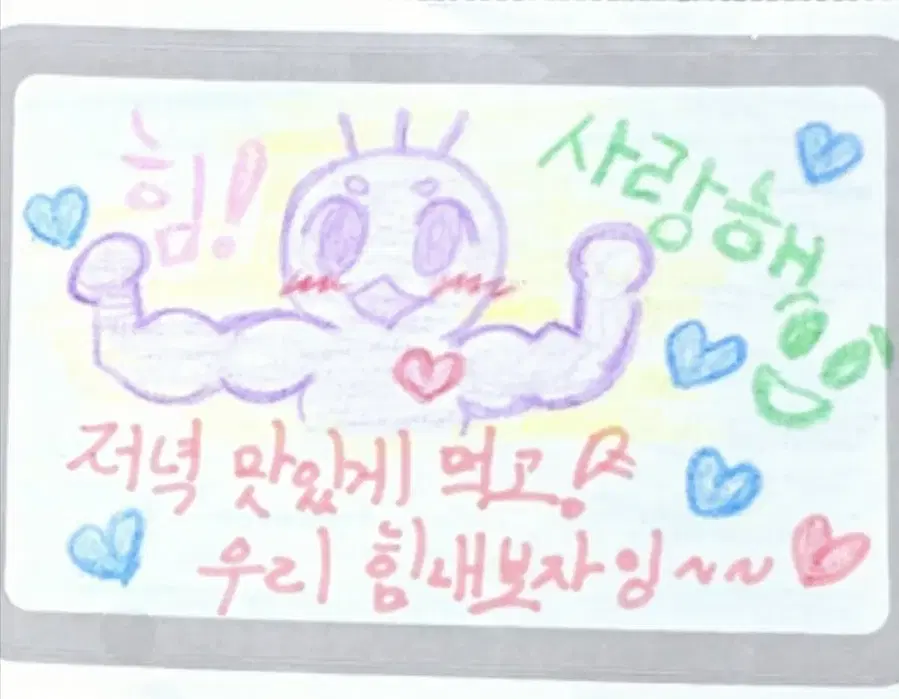 힘!
사랑해
저녁 맛있게 먹고!
우리 힘내보자잉~~